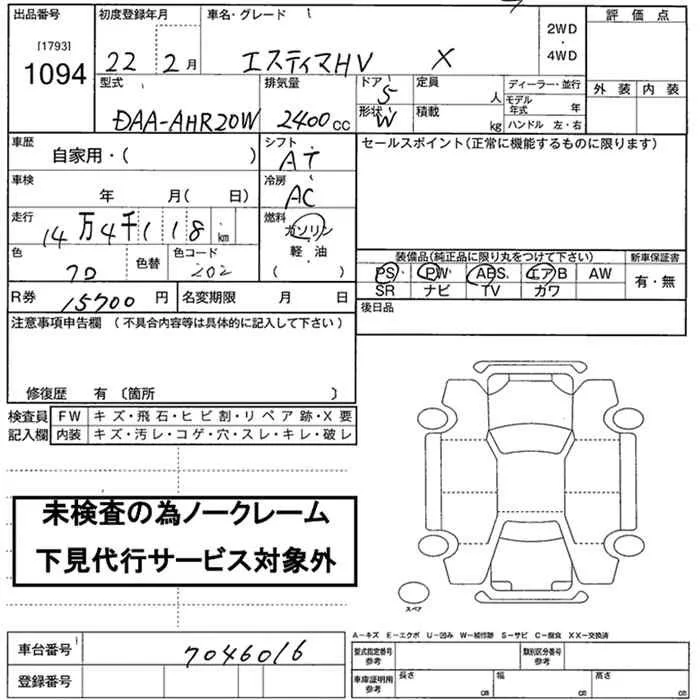 出品番号 初度登録年月 車名・グレード 2WD ・ 4WD 評価点
[1793]
1094 22 2月 エスティマHV X
型式 排気量 ドア 5 定員 人 ディーラー・並行 外装 内装
DAA-AHR20W 2400cc 形状 W 積載 kg モデル年式 年
ハンドル 左・右
車歴 シフト セールスポイント(正常に機能するものに限ります)
自家用・( ) AT
車検 冷房
年 月( 日) AC
走行 燃料
14万4千118km ガソリン
軽・油
色 色替 色コード ( ) 装備品(純正品に限り丸をつけて下さい) 新車保証書
202 PS PW ABS エアB AW 有・無
R券 15700円 名変期限 月 日 SR ナビ TV カワ
後日品
注意事項申告欄 (不具合内容等は具体的に記入して下さい)
修復歴 有 〔箇所 〕
検査員 FW キズ・飛石・ヒビ割・リペア跡・X要
記入欄 内装 キズ・汚レ・コゲ・穴・スレ・キレ・破レ
未検査の為ノークレーム
下見代行サービス対象外
スペア
A-キズ E-エクボ U-凹み W-補修跡 S-サビ C-腐食 XX-交換済
車台番号 7046016 型式指定番号 参考 類別区分番号 参考
登録番号 車庫証明用 参考 長さ cm 幅 cm 高さ cm